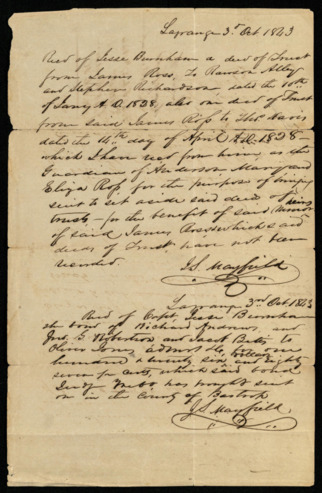 Lagrange 3d Oct 1843
Recd of Jesse Burnham a deed of Trust
from James Ross, to Rawson Alley
and Stephen Richardson dated the 10th
of Jany A.D. 1838, also one deed of Trust
from said James Ross to Thos. Davis
dated the 14th day of April A.D. 1838 -
which I have recd from him, as the
Guardian of Anderson Mary and
Eliza Ross, for the purpose of bringing
suit to set aside said deeds of
trusts - for the benefit of said minor heirs
of said James Ross which said
deeds of Trust have not been
recorded.
J.S. Mayfield
Lagrange 3rd Oct 1843
Recd of Capt. Jesse Burnham
the bond of Richard Andrews, and
and Jack Bets to
Oliver Jones admr. for one
hundred & twenty six and eighty
seven for cents, which said bond
Judge Webb has brought suit
on in the County of Bastrop
J.S. Mayfield